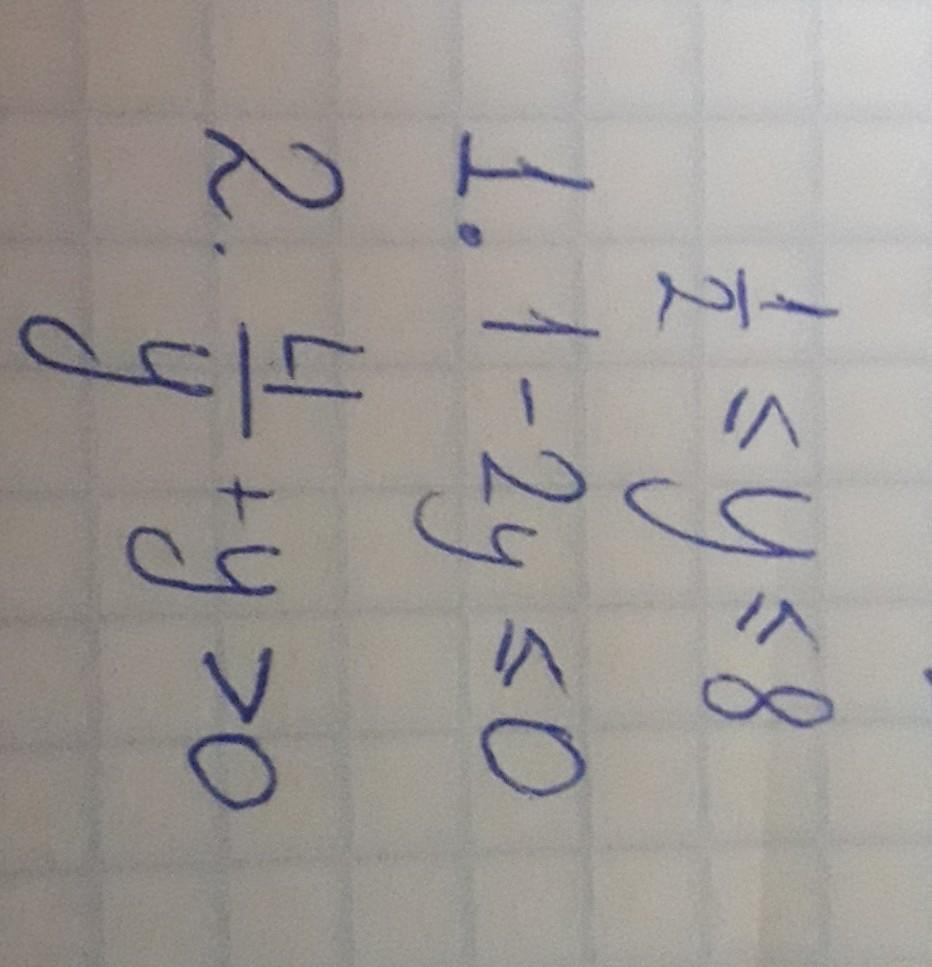 1/2 ≤ y ≤ 8
1. 1 - 2y ≤ 0
2. 4/y + y > 0